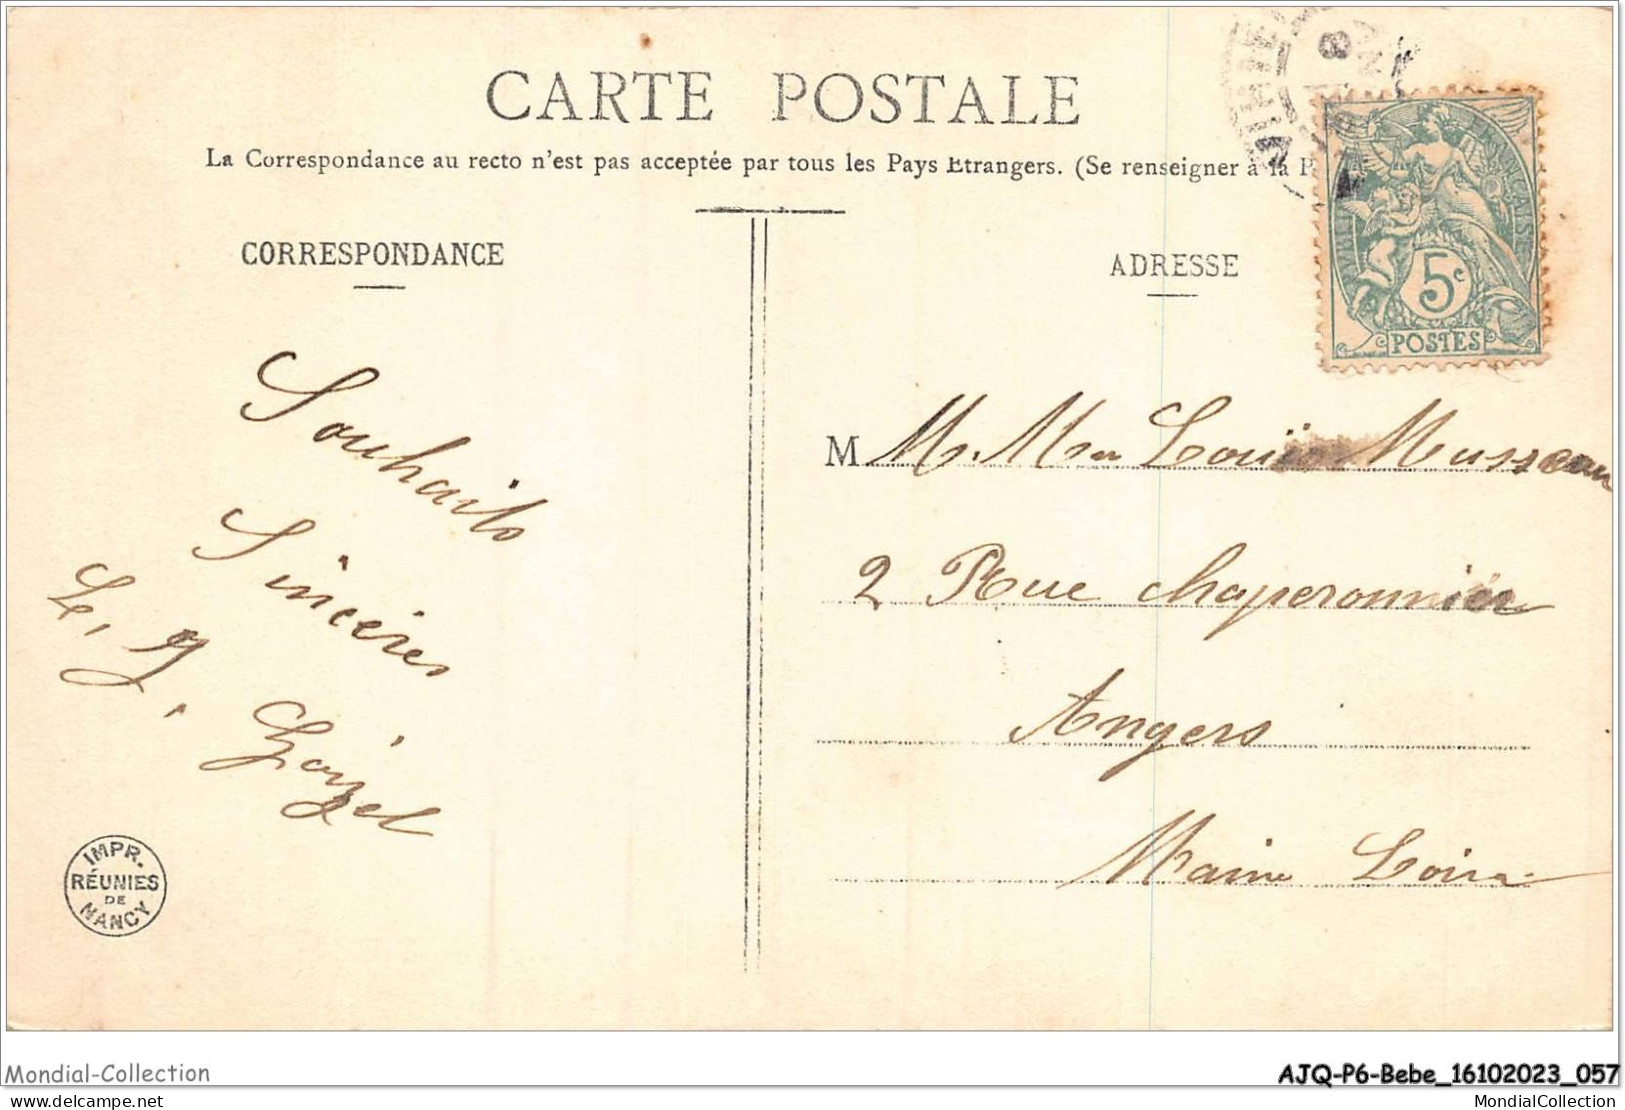 CARTE POSTALE
La Correspondance au recto n'est pas acceptée par tous les Pays Etrangers. (Se renseigner à la P
CORRESPONDANCE
ADRESSE
5c
POSTES
Souhaits
Sincères
M M. Mme Louis Musseau
2 Rue chaperonnière
Angers
Maine Loire
IMPR.
RÉUNIES
DE
NANCY
Mondial-Collection
AJQ-P6-Bebe_16102023_057
delcampe.net
MondialCollection